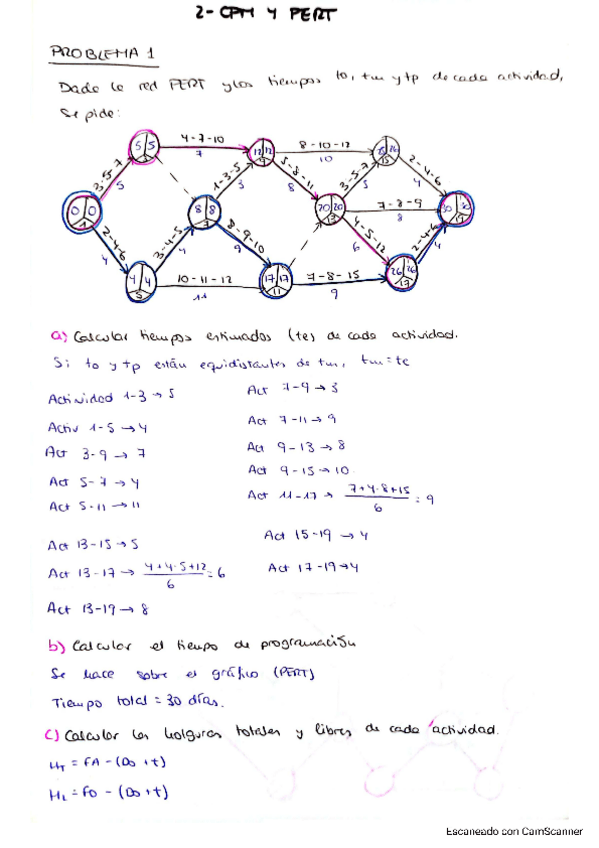 2-CPM Y PERT
PROBLEMA 1
Dada la red PERT y los tiempos to, tm y tp de cada actividad,
se pide:
4-7-10
7
8-10-12
10
5 5
3
12 12
9
26
15
3-5-7
5
1-3-5
3
5-8-11
8
3-5-7
5
2-4-6
4
0 0
1
8 8
7
20 20
13
7-8-9
8
30 30
19
2-4-6
4
3-4-5
4
8-9-10
9
4-5-12
6
2-4-6
4
4 4
5
10-11-12
11
17 17
11
7-8-15
9
26 26
17
a) Calcular tiempos estimados (te) de cada actividad.
Si to y tp están equidistantes de tm, tm=te
Actividad 1-3 → 5
Act 7-9 → 3
Activ 1-5 → 4
Act 7-11 → 9
Act 3-9 → 7
Act 9-13 → 8
Act 5-7 → 4
Act 9-15 → 10
Act 5-11 → 11
Act 11-17 → 7+4·8+15 / 6 = 9
Act 13-15 → 5
Act 15-19 → 4
Act 13-17 → 4+4·5+12 / 6 = 6
Act 17-19 → 4
Act 13-19 → 8
b) Calcular el tiempo de programación
Se hace sobre el gráfico (PERT)
Tiempo total = 30 días.
c) Calcular las holguras totales y libres de cada actividad.
HT = FA - (Do + t)
HL = FO - (Do + t)
Escaneado con CamScanner